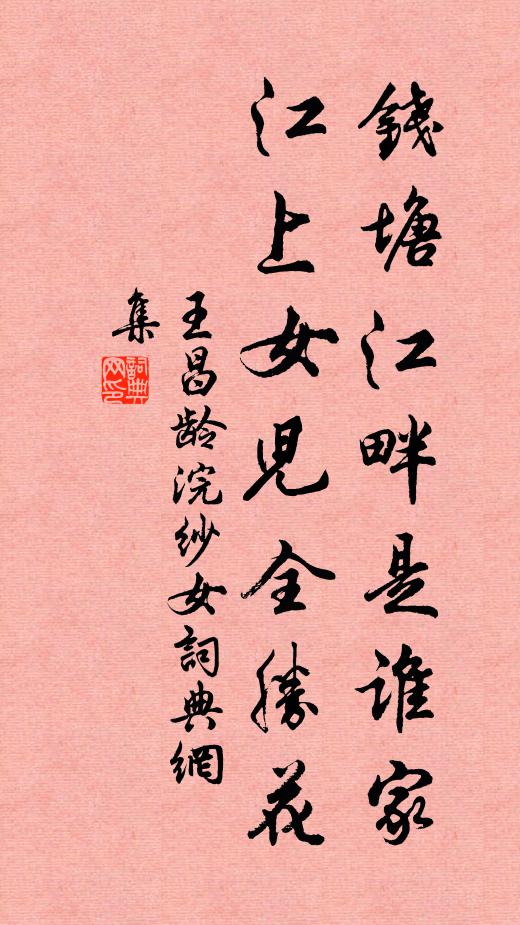 錢塘江畔是谁家
江上女兒全勝花
王昌龄浣纱女詞典網
集
詞典
网印